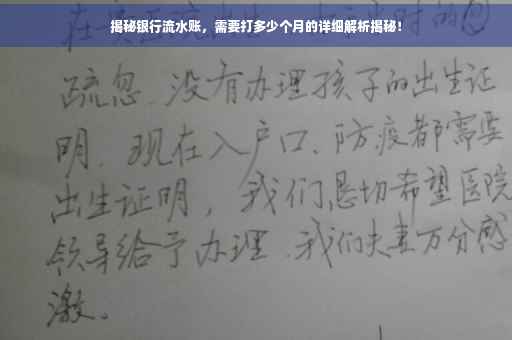 揭秘银行流水账，需要打多少个月的详细解析揭秘！
疏忽、没有办理孩子的出生证
明、现在入户口、防疫都需要
出生证明，我们恳切希望医院
领导给予办理、我们夫妻万分感
激。